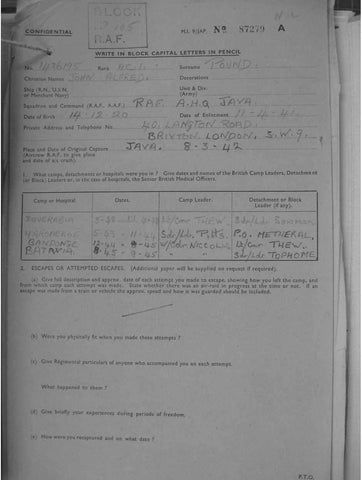 BLOCK
R.A.F.
CONFIDENTIAL
M.I. 9/JAP. No 87279 A
WRITE IN BLOCK CAPITAL LETTERS IN PENCIL
No. 1436195 Rank AC.1. Surname POUND.
Christian Names JOHN ALFRED. Decorations
Ship (R.N., U.S.N. or Merchant Navy) Unit & Div. (Army)
Squadron and Command (R.A.F. A.A.F.) RAF. A.H.Q JAVA.
Date of Birth 14-12-20 Date of Enlistment 11-4-41.
Private Address and Telephone No. 40, LANGTON ROAD,
BRIXTON, LONDON. S.W.9.
Place and Date of Original Capture JAVA. 8-3-42
(Aircrew R.A.F. to give place
and date of a/c crash).
1. What camps, detachments or hospitals were you in? Give dates and names of the British Camp Leaders, Detachment
(or Block) Leaders or, in the case of hospitals, the Senior British Medical Officers.
Camp or Hospital. Dates. Camp Leader. Detachment or Block Leader (if any).
THEW.
PITTS. P.O. METHERAL.
BANDONGE 12-44 9-45 W/Cdr NICOLLS Lt/Cdr THEW.
BATAVIA. 9-45 Sdr/Ldr TOPHOME
2. ESCAPES OR ATTEMPTED ESCAPES. (Additional paper will be supplied on request if required).
(a) Give full description and approx. date of each attempt you made to escape, showing how you left the camp, and
from which camp each attempt was made. State whether there was an air-raid in progress at the time or not. If an
escape was made from a train or vehicle the approx. speed and how it was guarded should be included.
(b) Were you physically fit when you made these attempts?
(c) Give Regimental particulars of anyone who accompanied you on each attempt.
What happened to them?
(d) Give briefly your experiences during periods of freedom.
(e) How were you recaptured and on what date?
P.T.O.